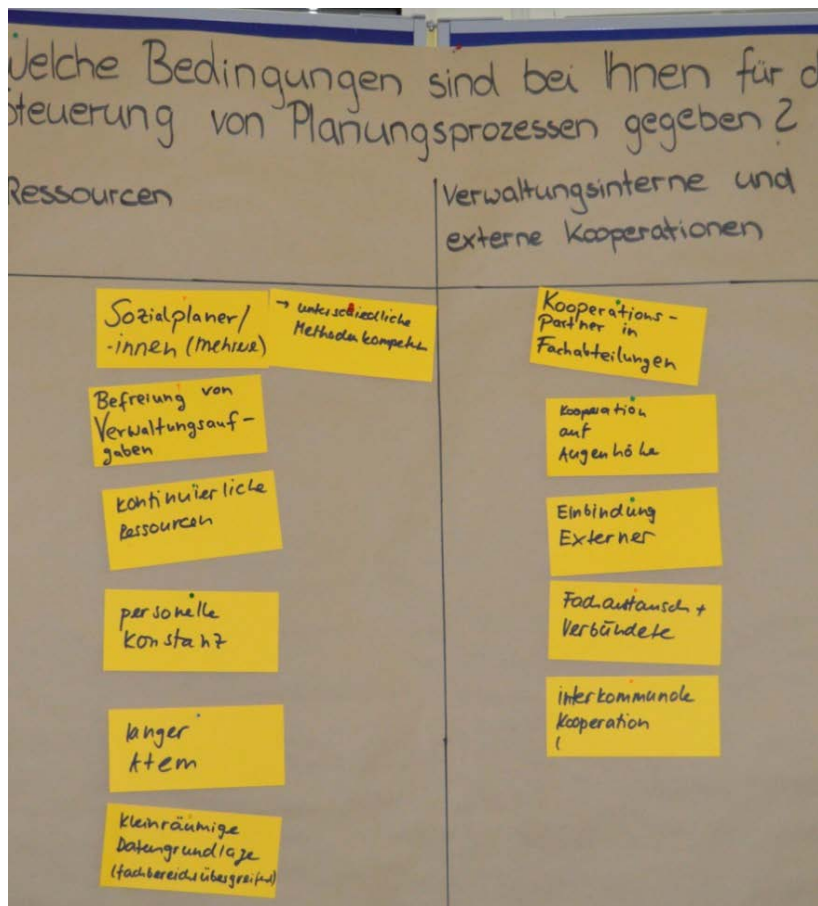 Welche Bedingungen sind bei Ihnen für d
Steuerung von Planungsprozessen gegeben?
Ressourcen
Sozialplaner/
-innen (mehrere)
→ unterschiedliche
Methodenkompeten
Befreiung von
Verwaltungsauf-
gaben
kontinuierliche
Ressourcen
personelle
Konstanz
langer
Atem
Kleinräumige
Datengrundlage
(fachbereichsübergreifend)
Verwaltungsinterne und
externe Kooperationen
Kooperations-
Partner in
Fachabteilungen
Kooperation
auf
Augenhöhe
Einbindung
Externer
Fachaustausch +
Verbündete
interkommunale
Kooperation
(